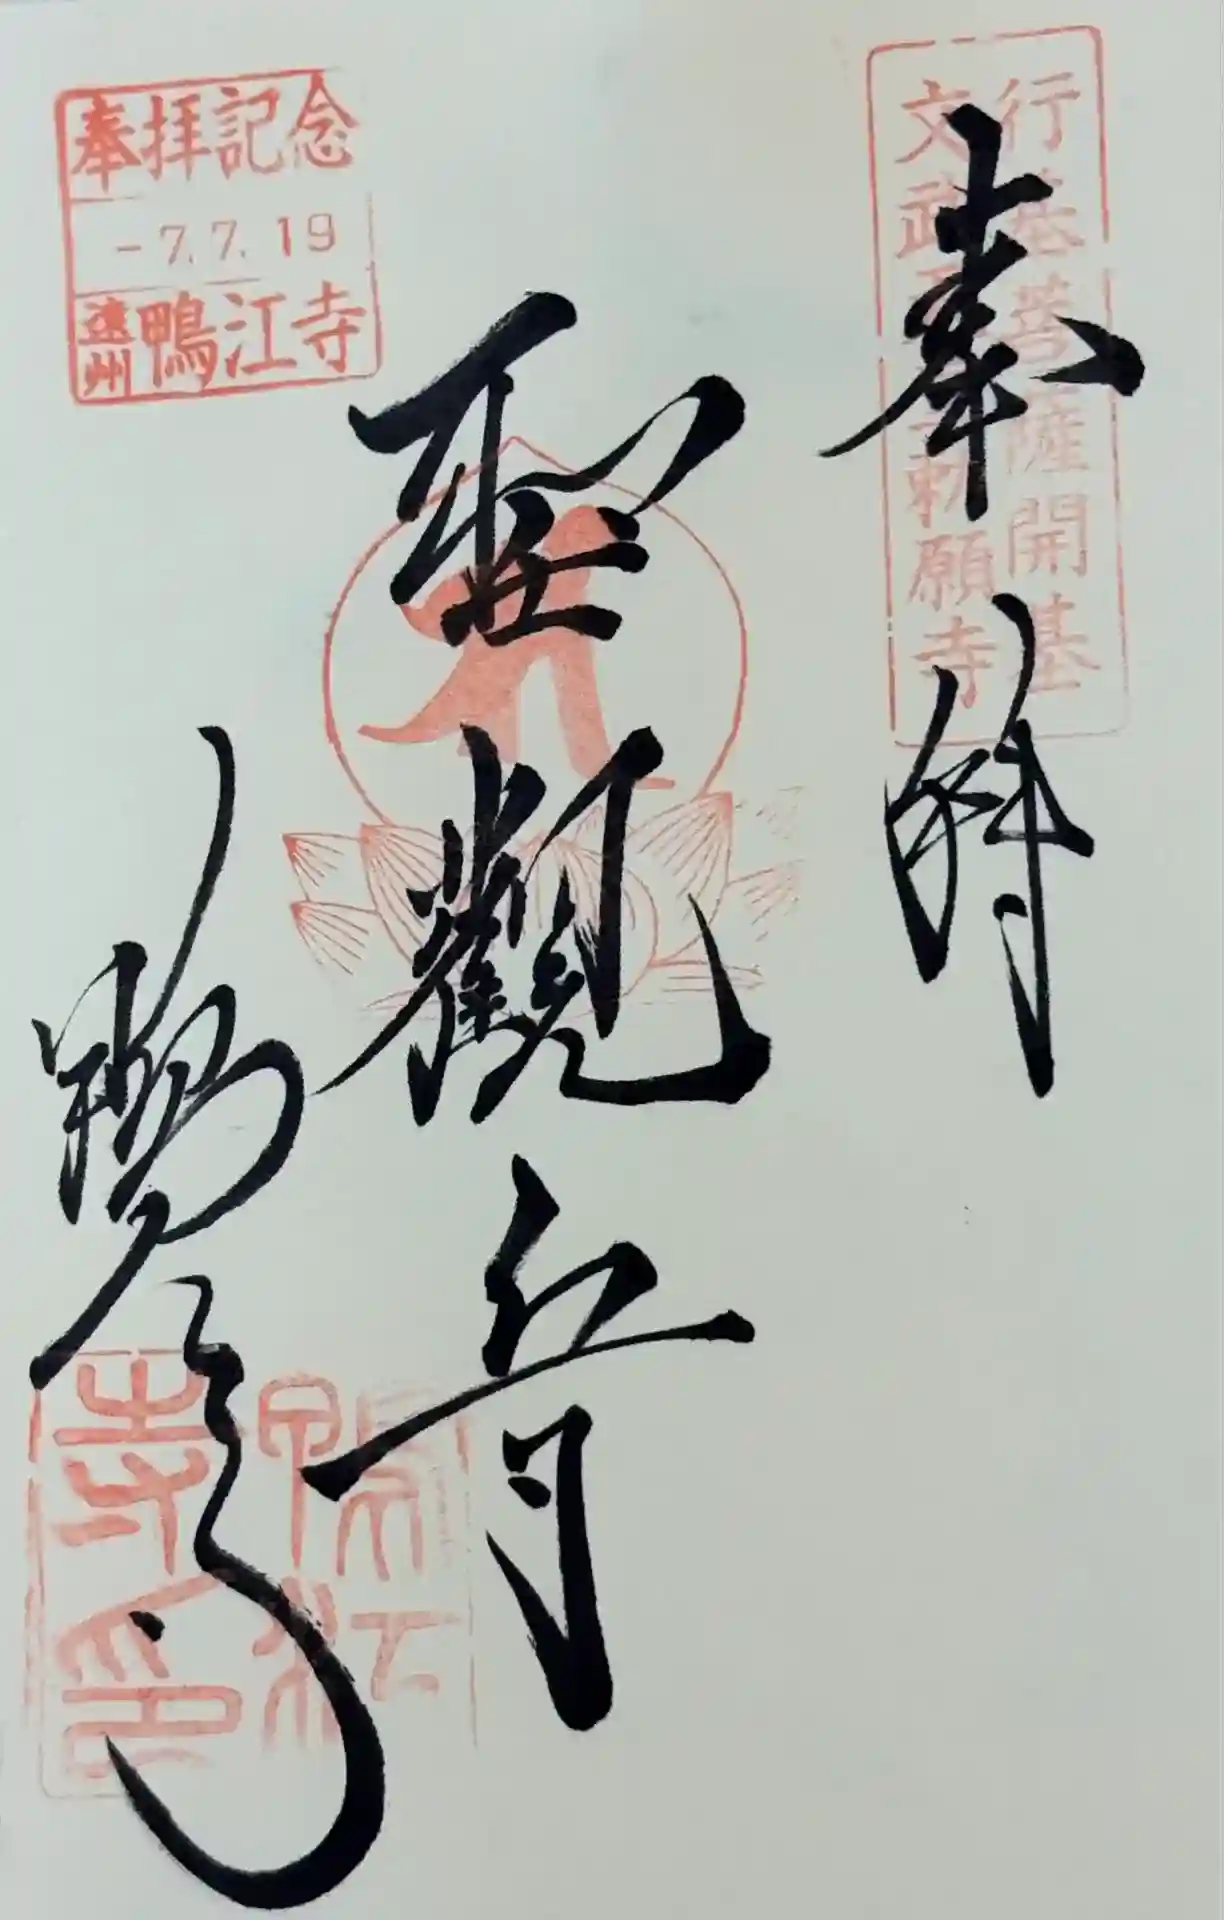 奉拝
行基菩薩開基
文武天皇勅願寺
聖観音
鴨江寺
奉拝記念
-7.7.19
遠州鴨江寺
鴨江
寺印